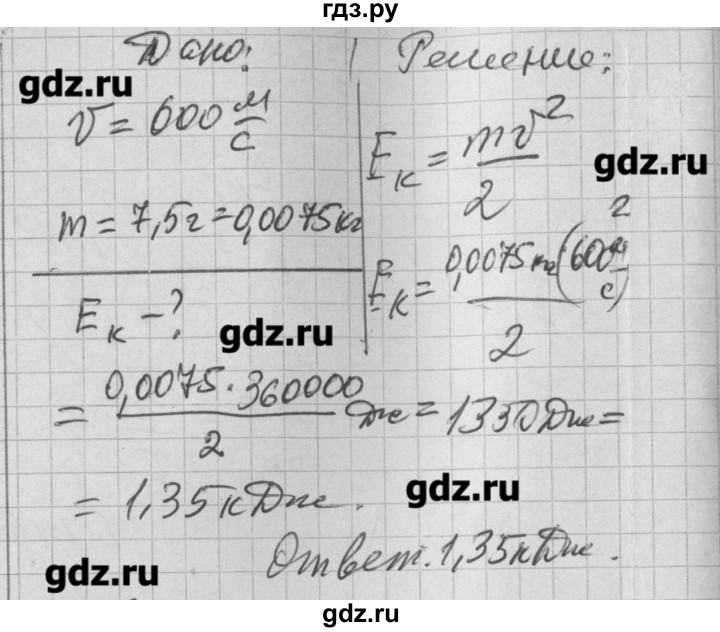 гдз.ру
Дано:
gdz.ru
v = 600 м/с
m = 7,5г = 0,0075кг
Eк - ?
Решение:
Eк = mv²/2
gdz.ru
Eк = 0,0075кг(600 м/с)²/2
gdz.ru
= 0,0075 · 360000/2 Дж = 1350Дж =
= 1,35кДж.
gdz.ru
Ответ. 1,35кДж.
gdz.ru
gdz.ru